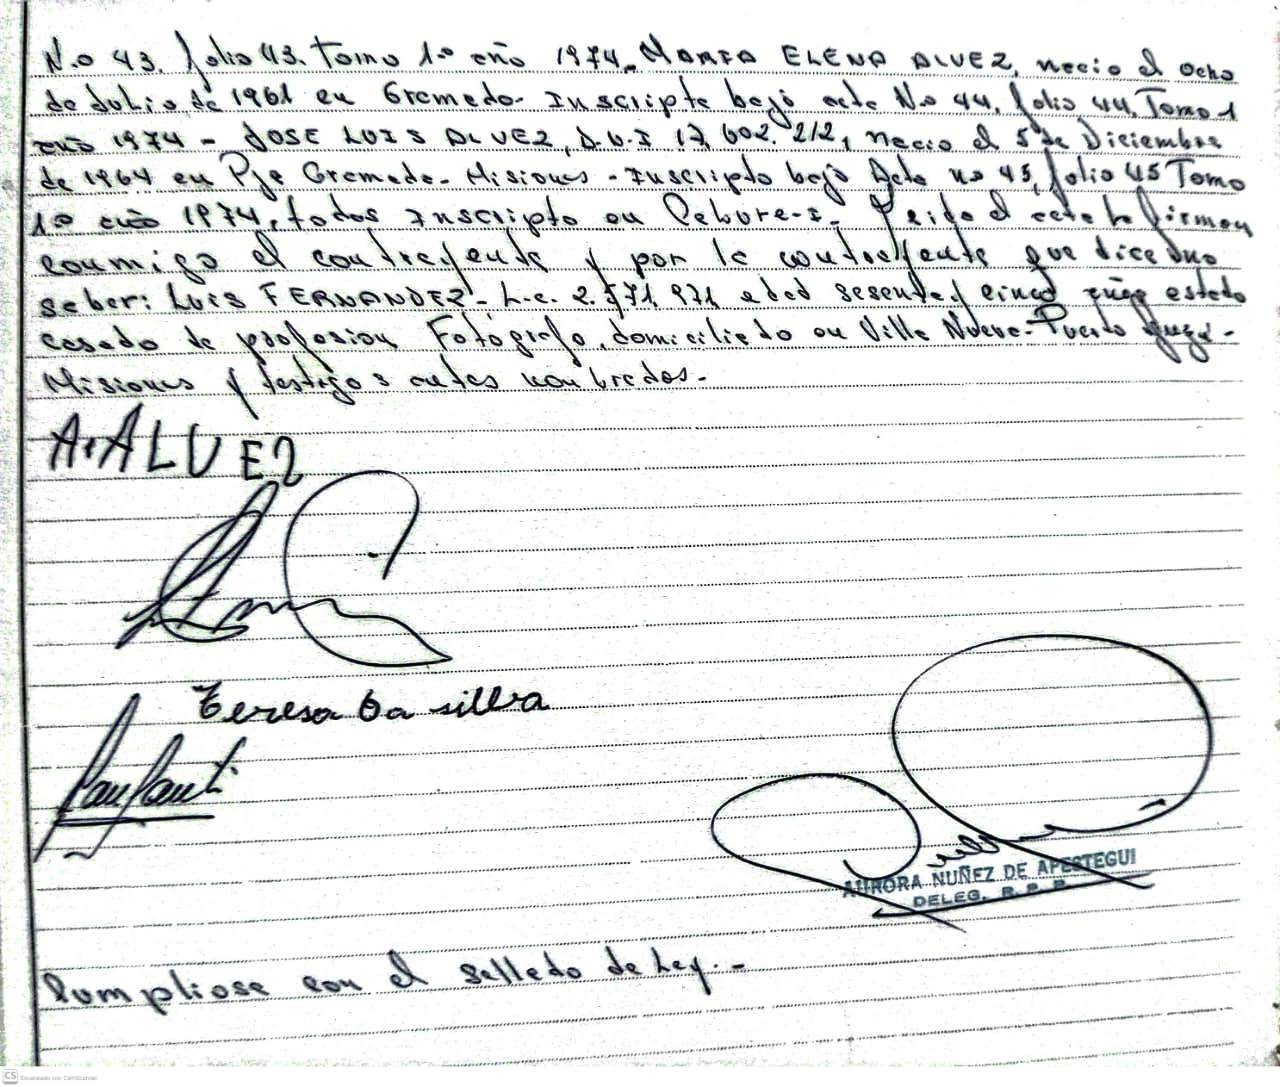 N.o 43. folio 43. Tomo 1.o año 1974. MARIA ELENA ALVEZ, nacio el ocho
de Julio de 1961 en Gramado. Inscripta bajo acta No 44, folio 44, Tomo 1
año 1974 - JOSE LUIS ALVEZ, D.N.I 17.602.212, nacio el 5 de Diciembre
de 1964 en Pje Gramado - Misiones - Inscripto bajo Acta no 45, folio 45 Tomo
1.o año 1974, todos Inscripto en Cabure-I. Leida el acta la firman
conmigo el contrayente y por la contrayente que dice no
saber: LUIS FERNANDEZ - L.e. 2.571.971 edad sesenta y cinco años estado
casado de profesion Fotógrafo, domiciliado en Villa Nueva - Puerto
Misiones y testigos antes nombrados.-
A. ALVEZ
Teresa Da silva
AURORA NUÑEZ DE APESTEGUI
DELEG. R. P. P.
Cumpliose con el sellado de Ley.-
CS Escaneado con CamScanner